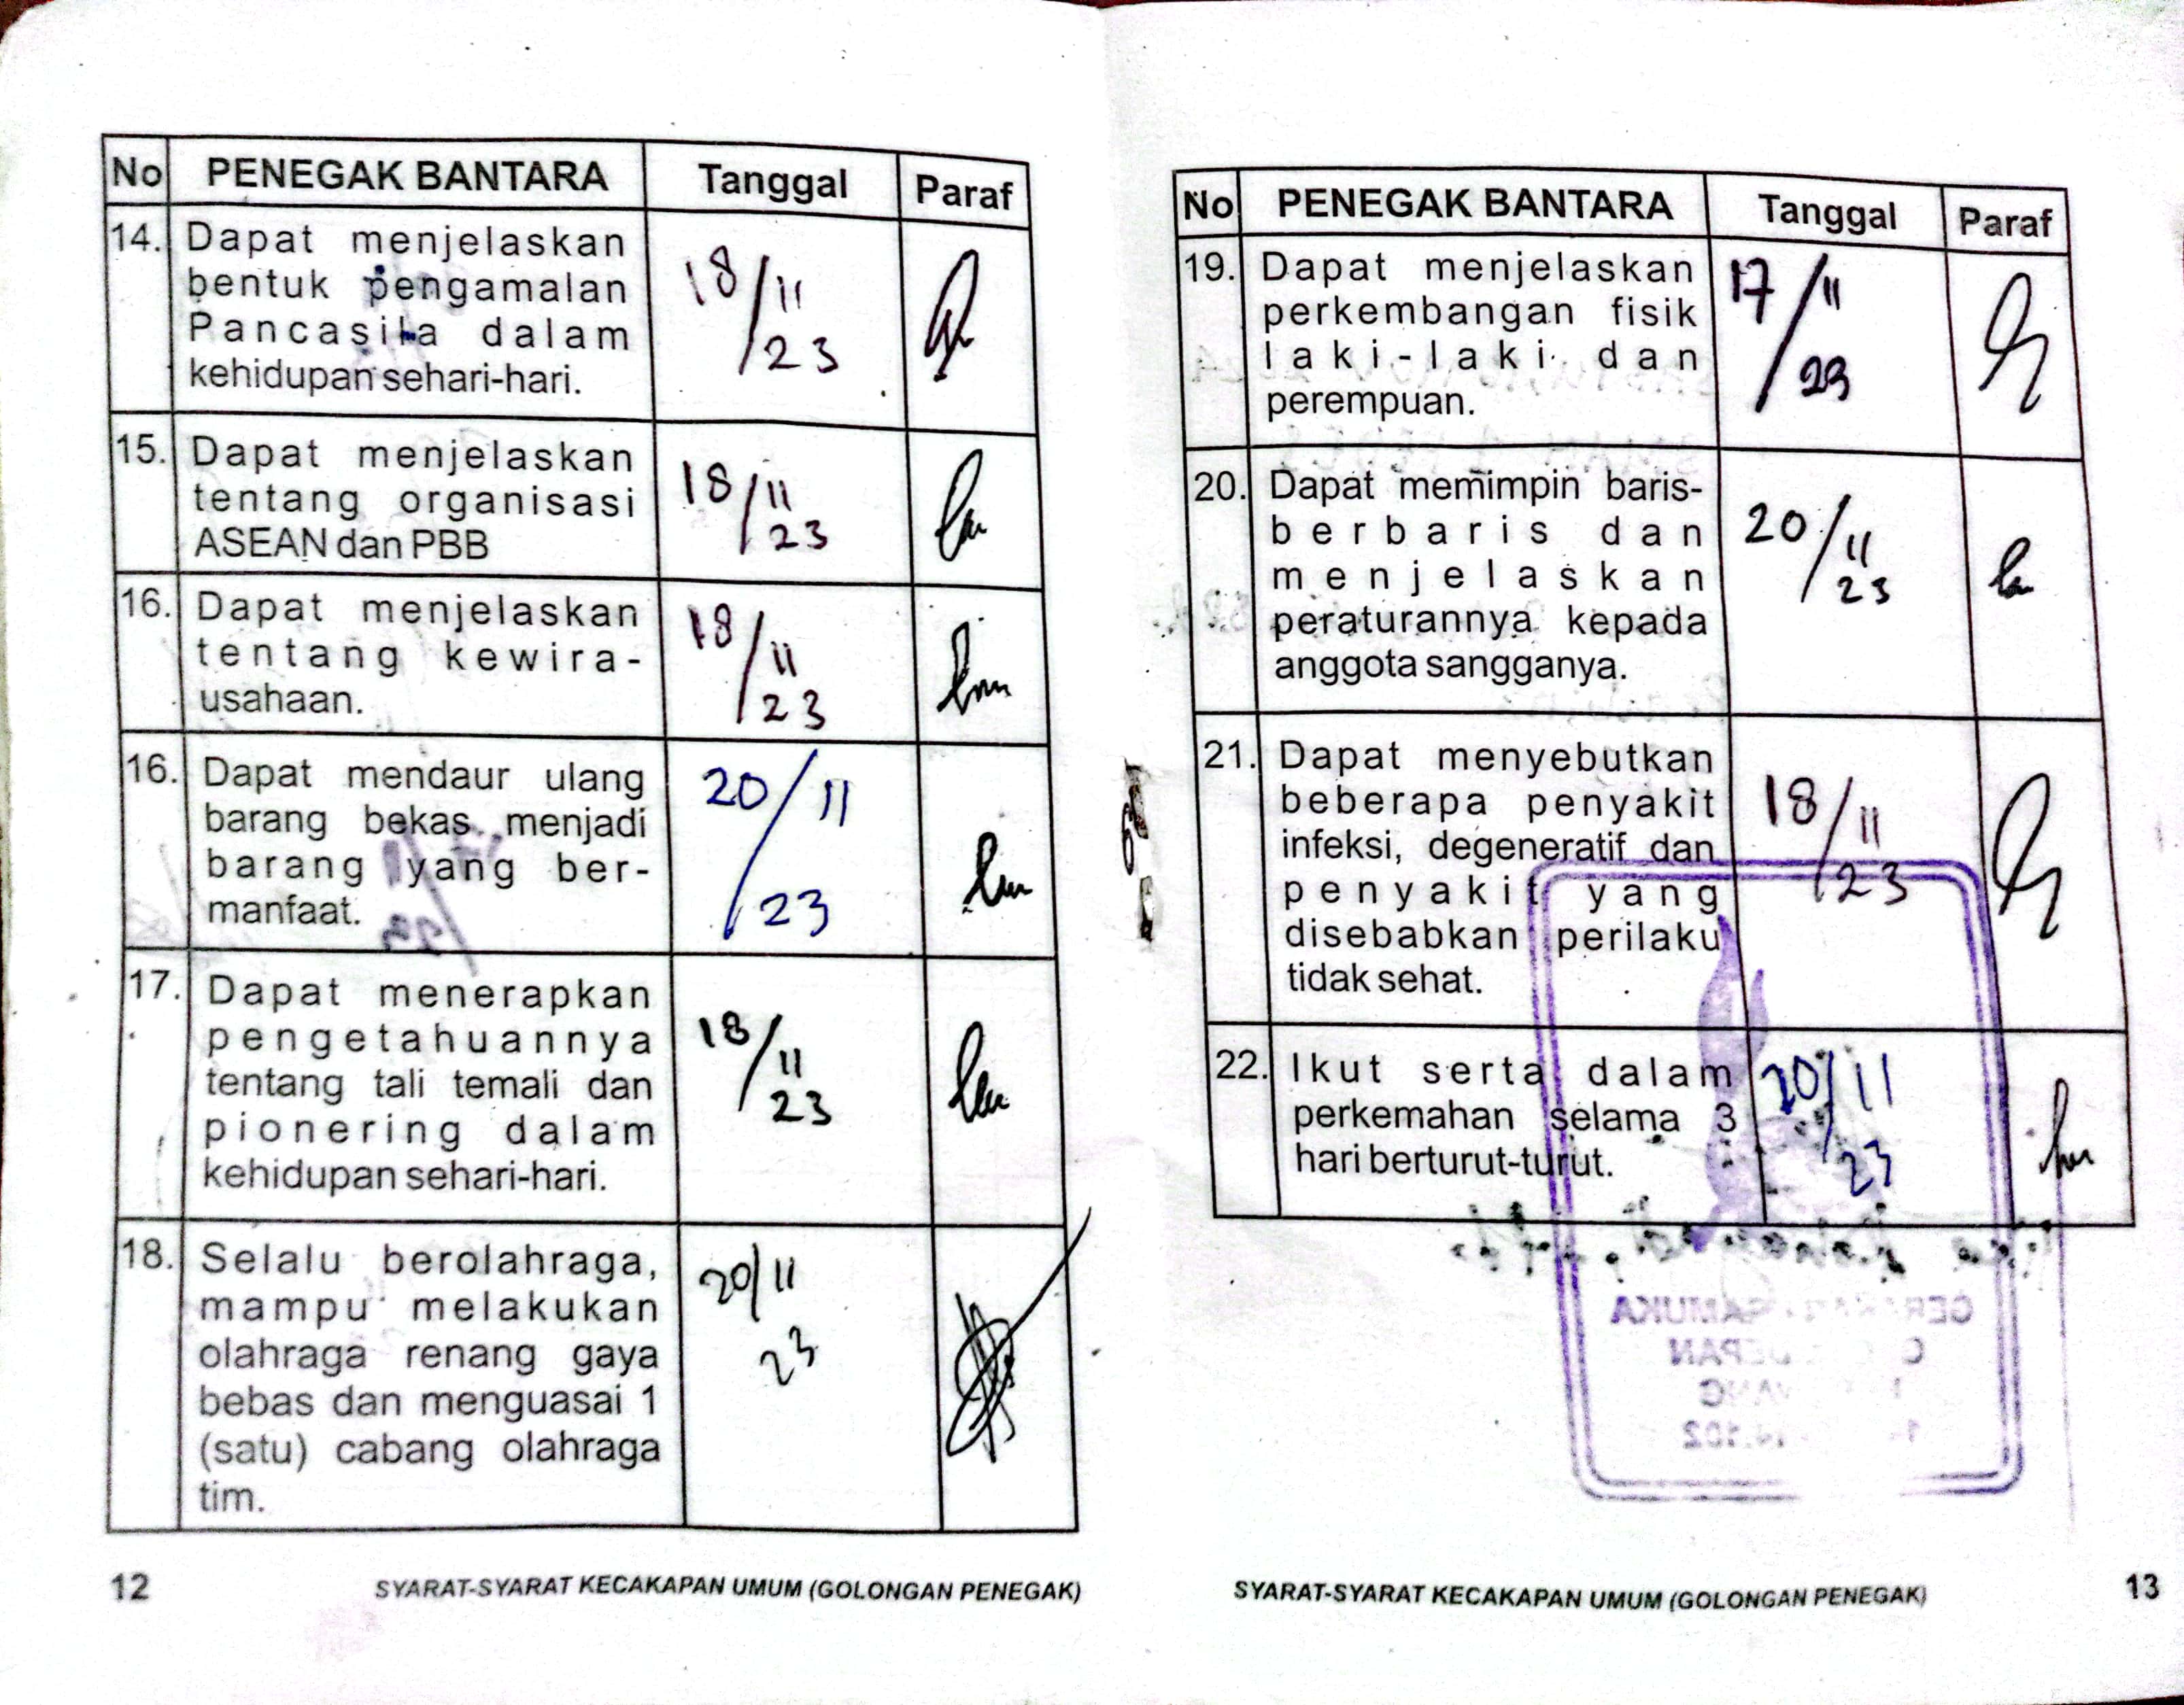 No PENEGAK BANTARA Tanggal Paraf
14. Dapat menjelaskan
bentuk pengamalan
Pancasila dalam
kehidupan sehari-hari.
18/11
23
15. Dapat menjelaskan
tentang organisasi
ASEAN dan PBB
18/11
23
16. Dapat menjelaskan
tentang kewira-
usahaan.
18/11
23
16. Dapat mendaur ulang
barang bekas menjadi
barang yang ber-
manfaat.
20/11
23
17. Dapat menerapkan
pengetahuannya
tentang tali temali dan
pionering dalam
kehidupan sehari-hari.
18/11
23
18. Selalu berolahraga,
mampu melakukan
olahraga renang gaya
bebas dan menguasai 1
(satu) cabang olahraga
tim.
20/11
23
12 SYARAT-SYARAT KECAKAPAN UMUM (GOLONGAN PENEGAK)
No PENEGAK BANTARA Tanggal Paraf
19. Dapat menjelaskan
perkembangan fisik
laki-laki dan
perempuan.
17/11
23
20. Dapat memimpin baris-
berbaris dan
menjelaskan
peraturannya kepada
anggota sangganya.
20/11
23
21. Dapat menyebutkan
beberapa penyakit
infeksi, degeneratif dan
penyakit yang
disebabkan perilaku
tidak sehat.
18/11
23
22. Ikut serta dalam
perkemahan selama 3
hari berturut-turut.
20/11
23
SYARAT-SYARAT KECAKAPAN UMUM (GOLONGAN PENEGAK) 13